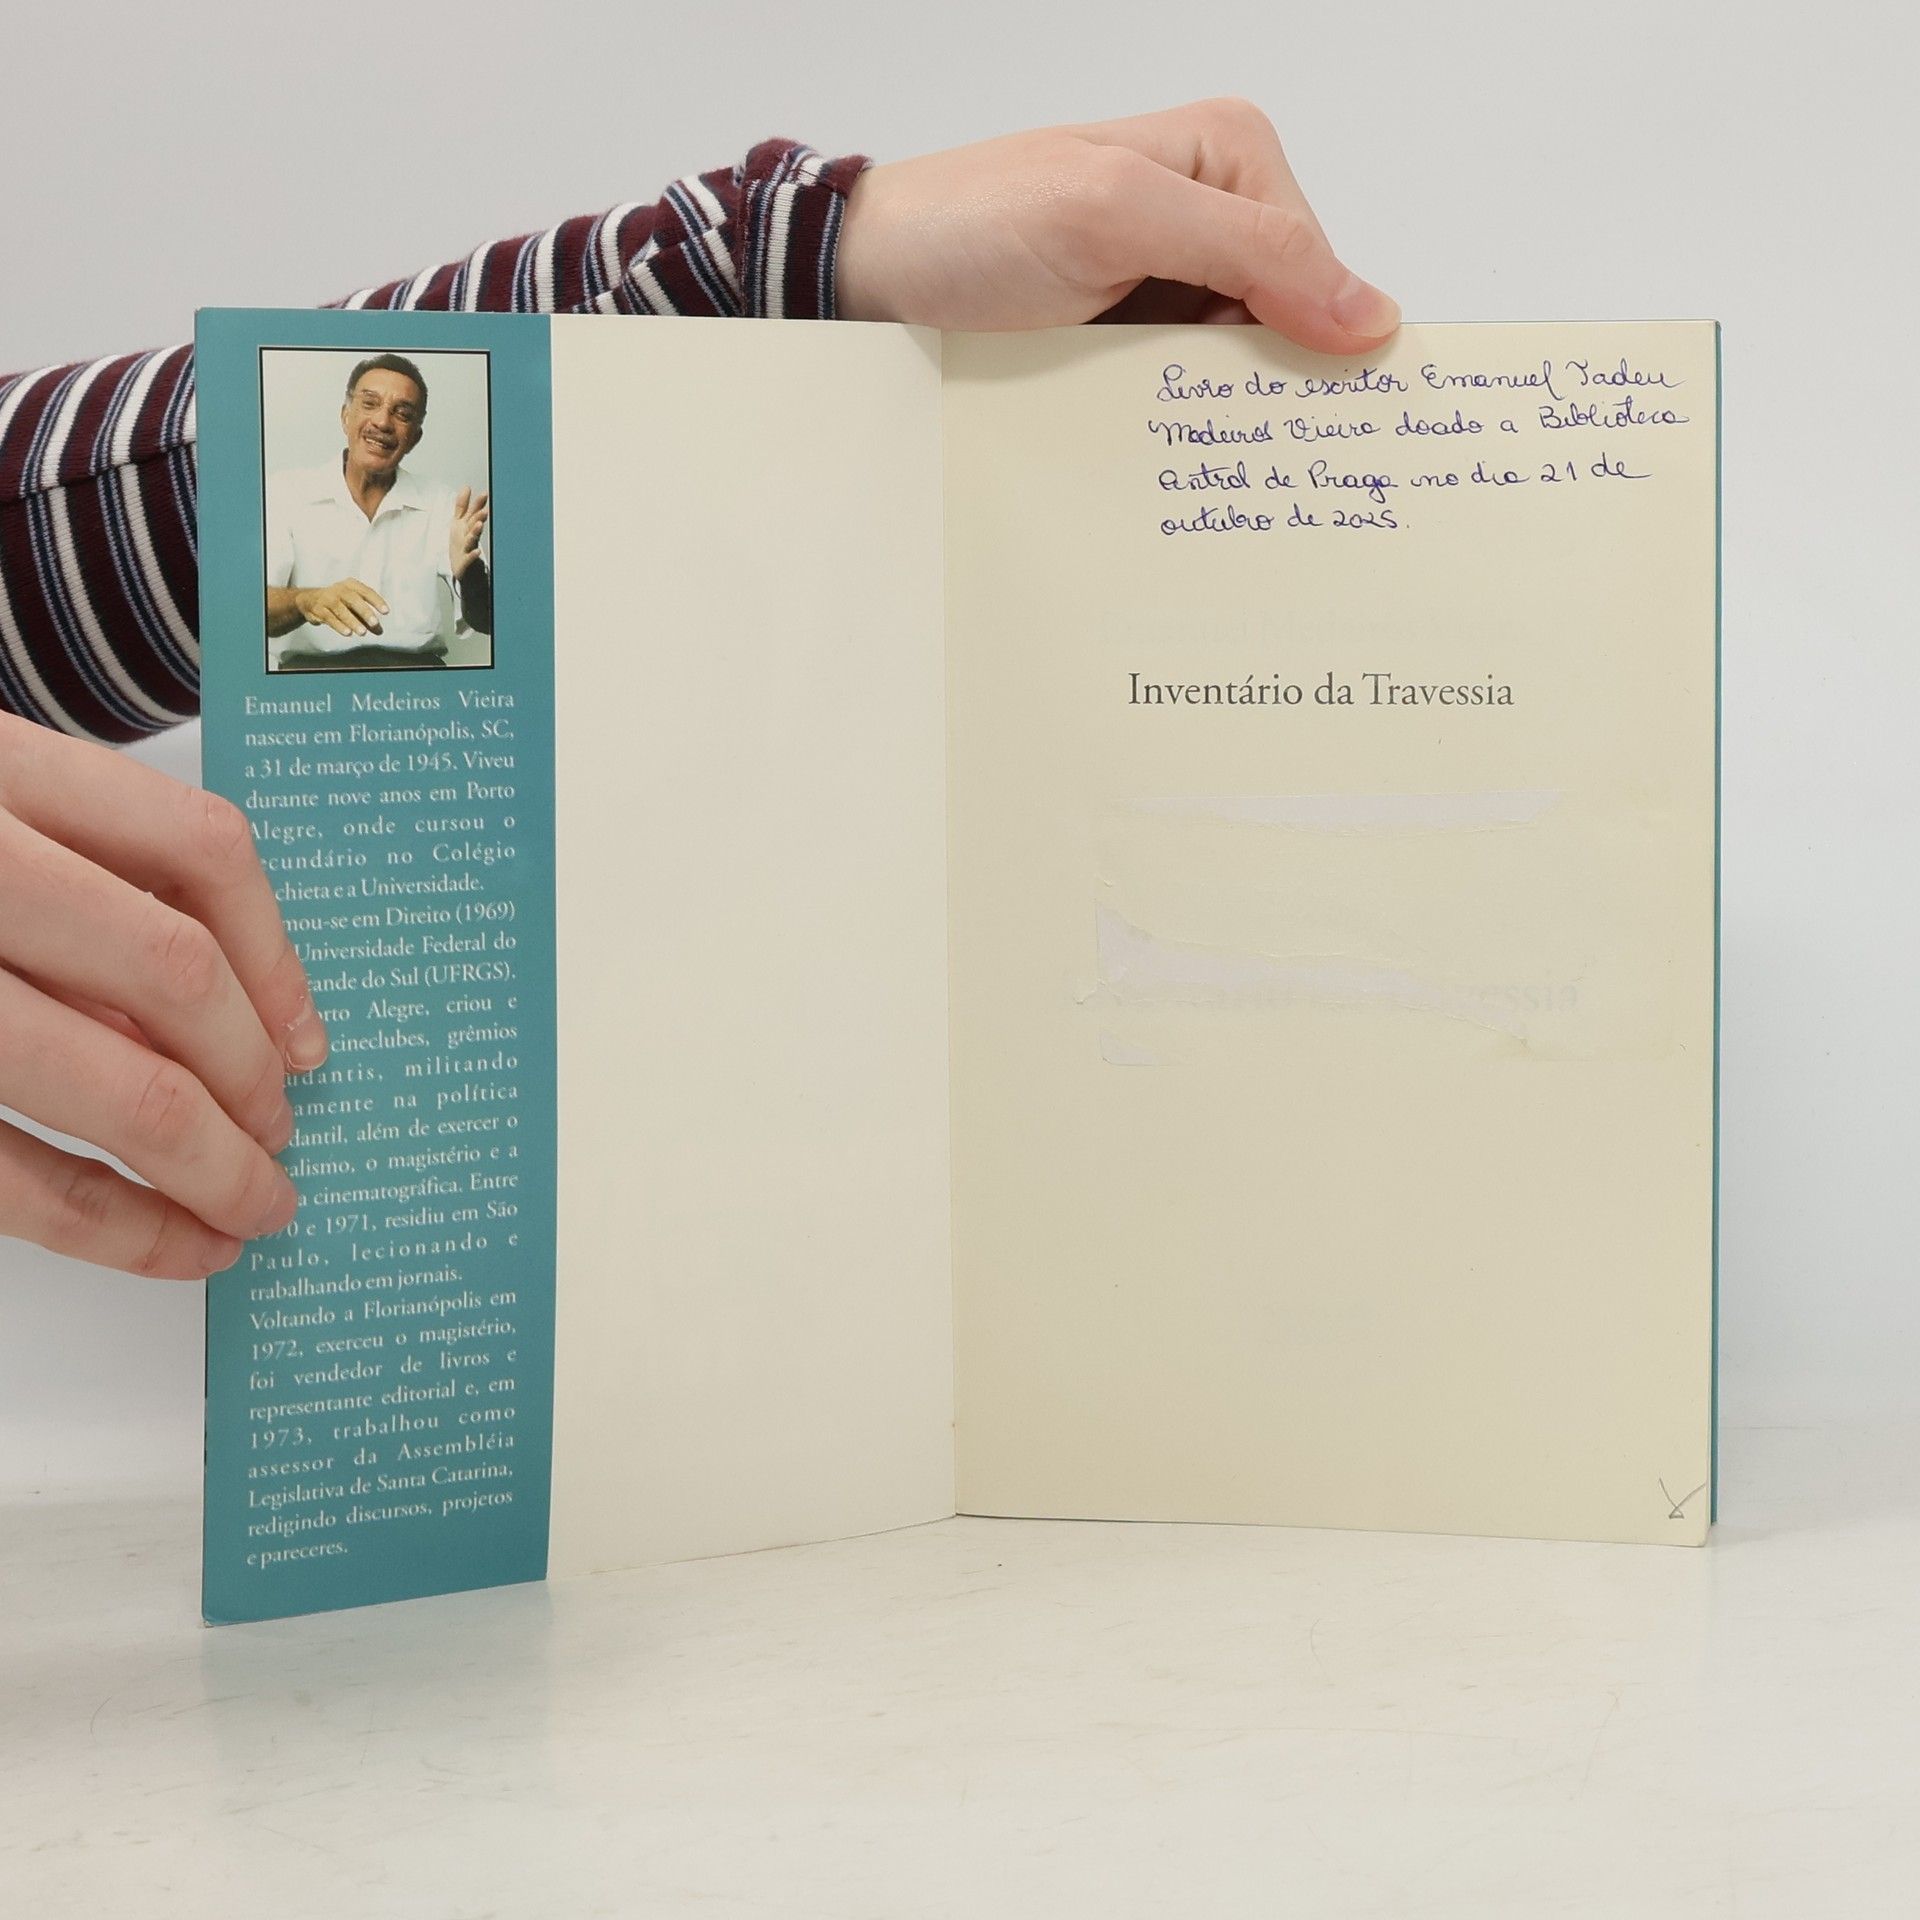 Emanuel Medeiros Vieira
nasceu em Florianópolis, SC,
a 31 de março de 1945. Viveu
durante nove anos em Porto
Alegre, onde cursou o
ecundário no Colégio
chieta e a Universidade.
mou-se em Direito (1969)
Universidade Federal do
ande do Sul (UFRGS).
orto Alegre, criou e
cineclubes, grêmios
udantis, militando
amente na política
dantil, além de exercer o
alismo, o magistério e a
a cinematográfica. Entre
e 1971, residiu em São
Paulo, lecionando e
trabalhando em jornais.
Voltando a Florianópolis em
1972, exerceu o magistério,
foi vendedor de livros e
representante editorial e, em
1973, trabalhou como
assessor da Assembléia
Legislativa de Santa Catarina,
redigindo discursos, projetos
e pareceres.
Livro do escritor Emanuel Tadeu
Medeiros Vieira doado a Biblioteca
de Praga no dia 21 de
outubro de 2025.
Inventário da Travessia